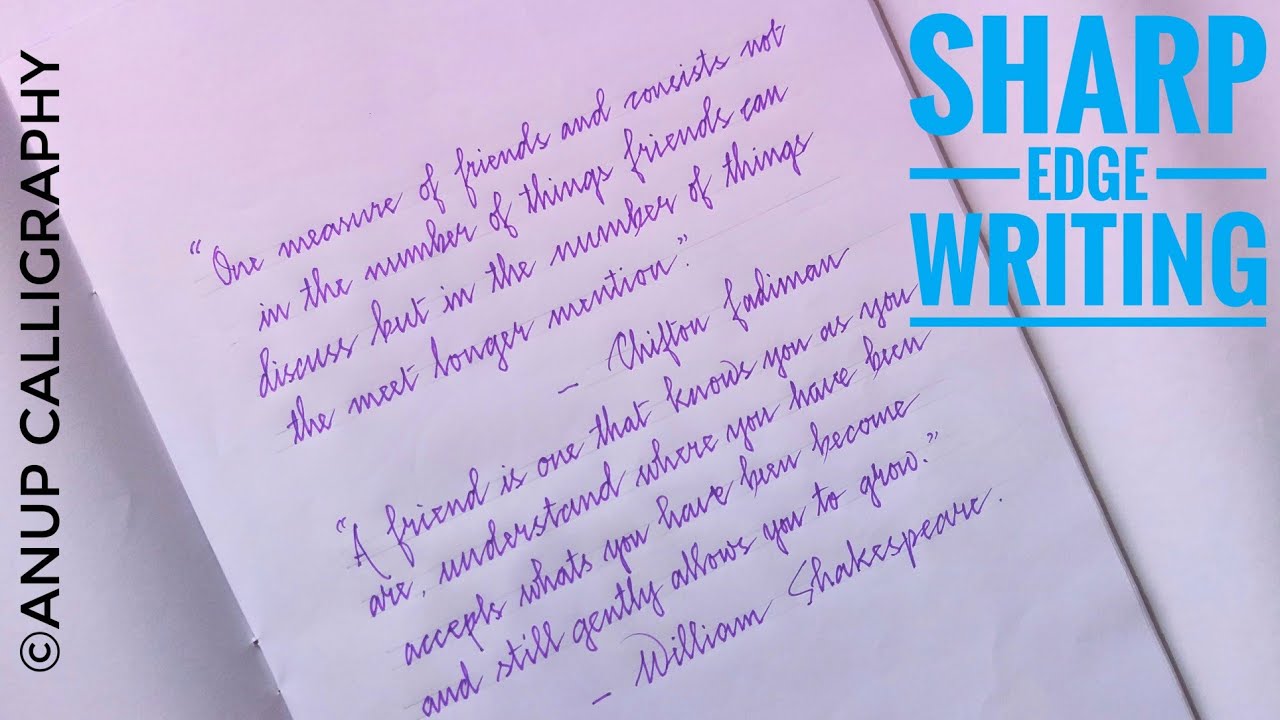 ©ANUP CALLIGRAPHY
SHARP
EDGE
WRITING
“One measure of friends and consists not
in the number of things friends can
discuss but in the number of things
the meet longer mention.”
– Chifton fadiman
“A friend is one that knows you as you
are, understand where you have been
accepts whats you have been become
and still gently allows you to grow.”
– William Shakespeare.